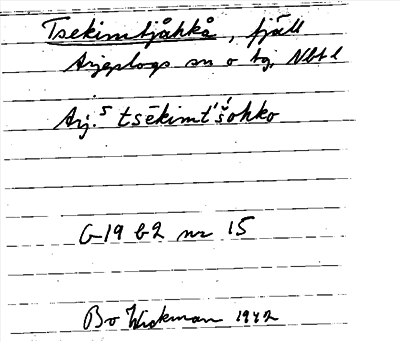 Tsekimtjåhkå, fjäll
Arjeplogs sn o tg, Nbt l
Arj.⁵ tsēkimt'š́ohko
G19 b2 nr 15
Bo Wickman 1942